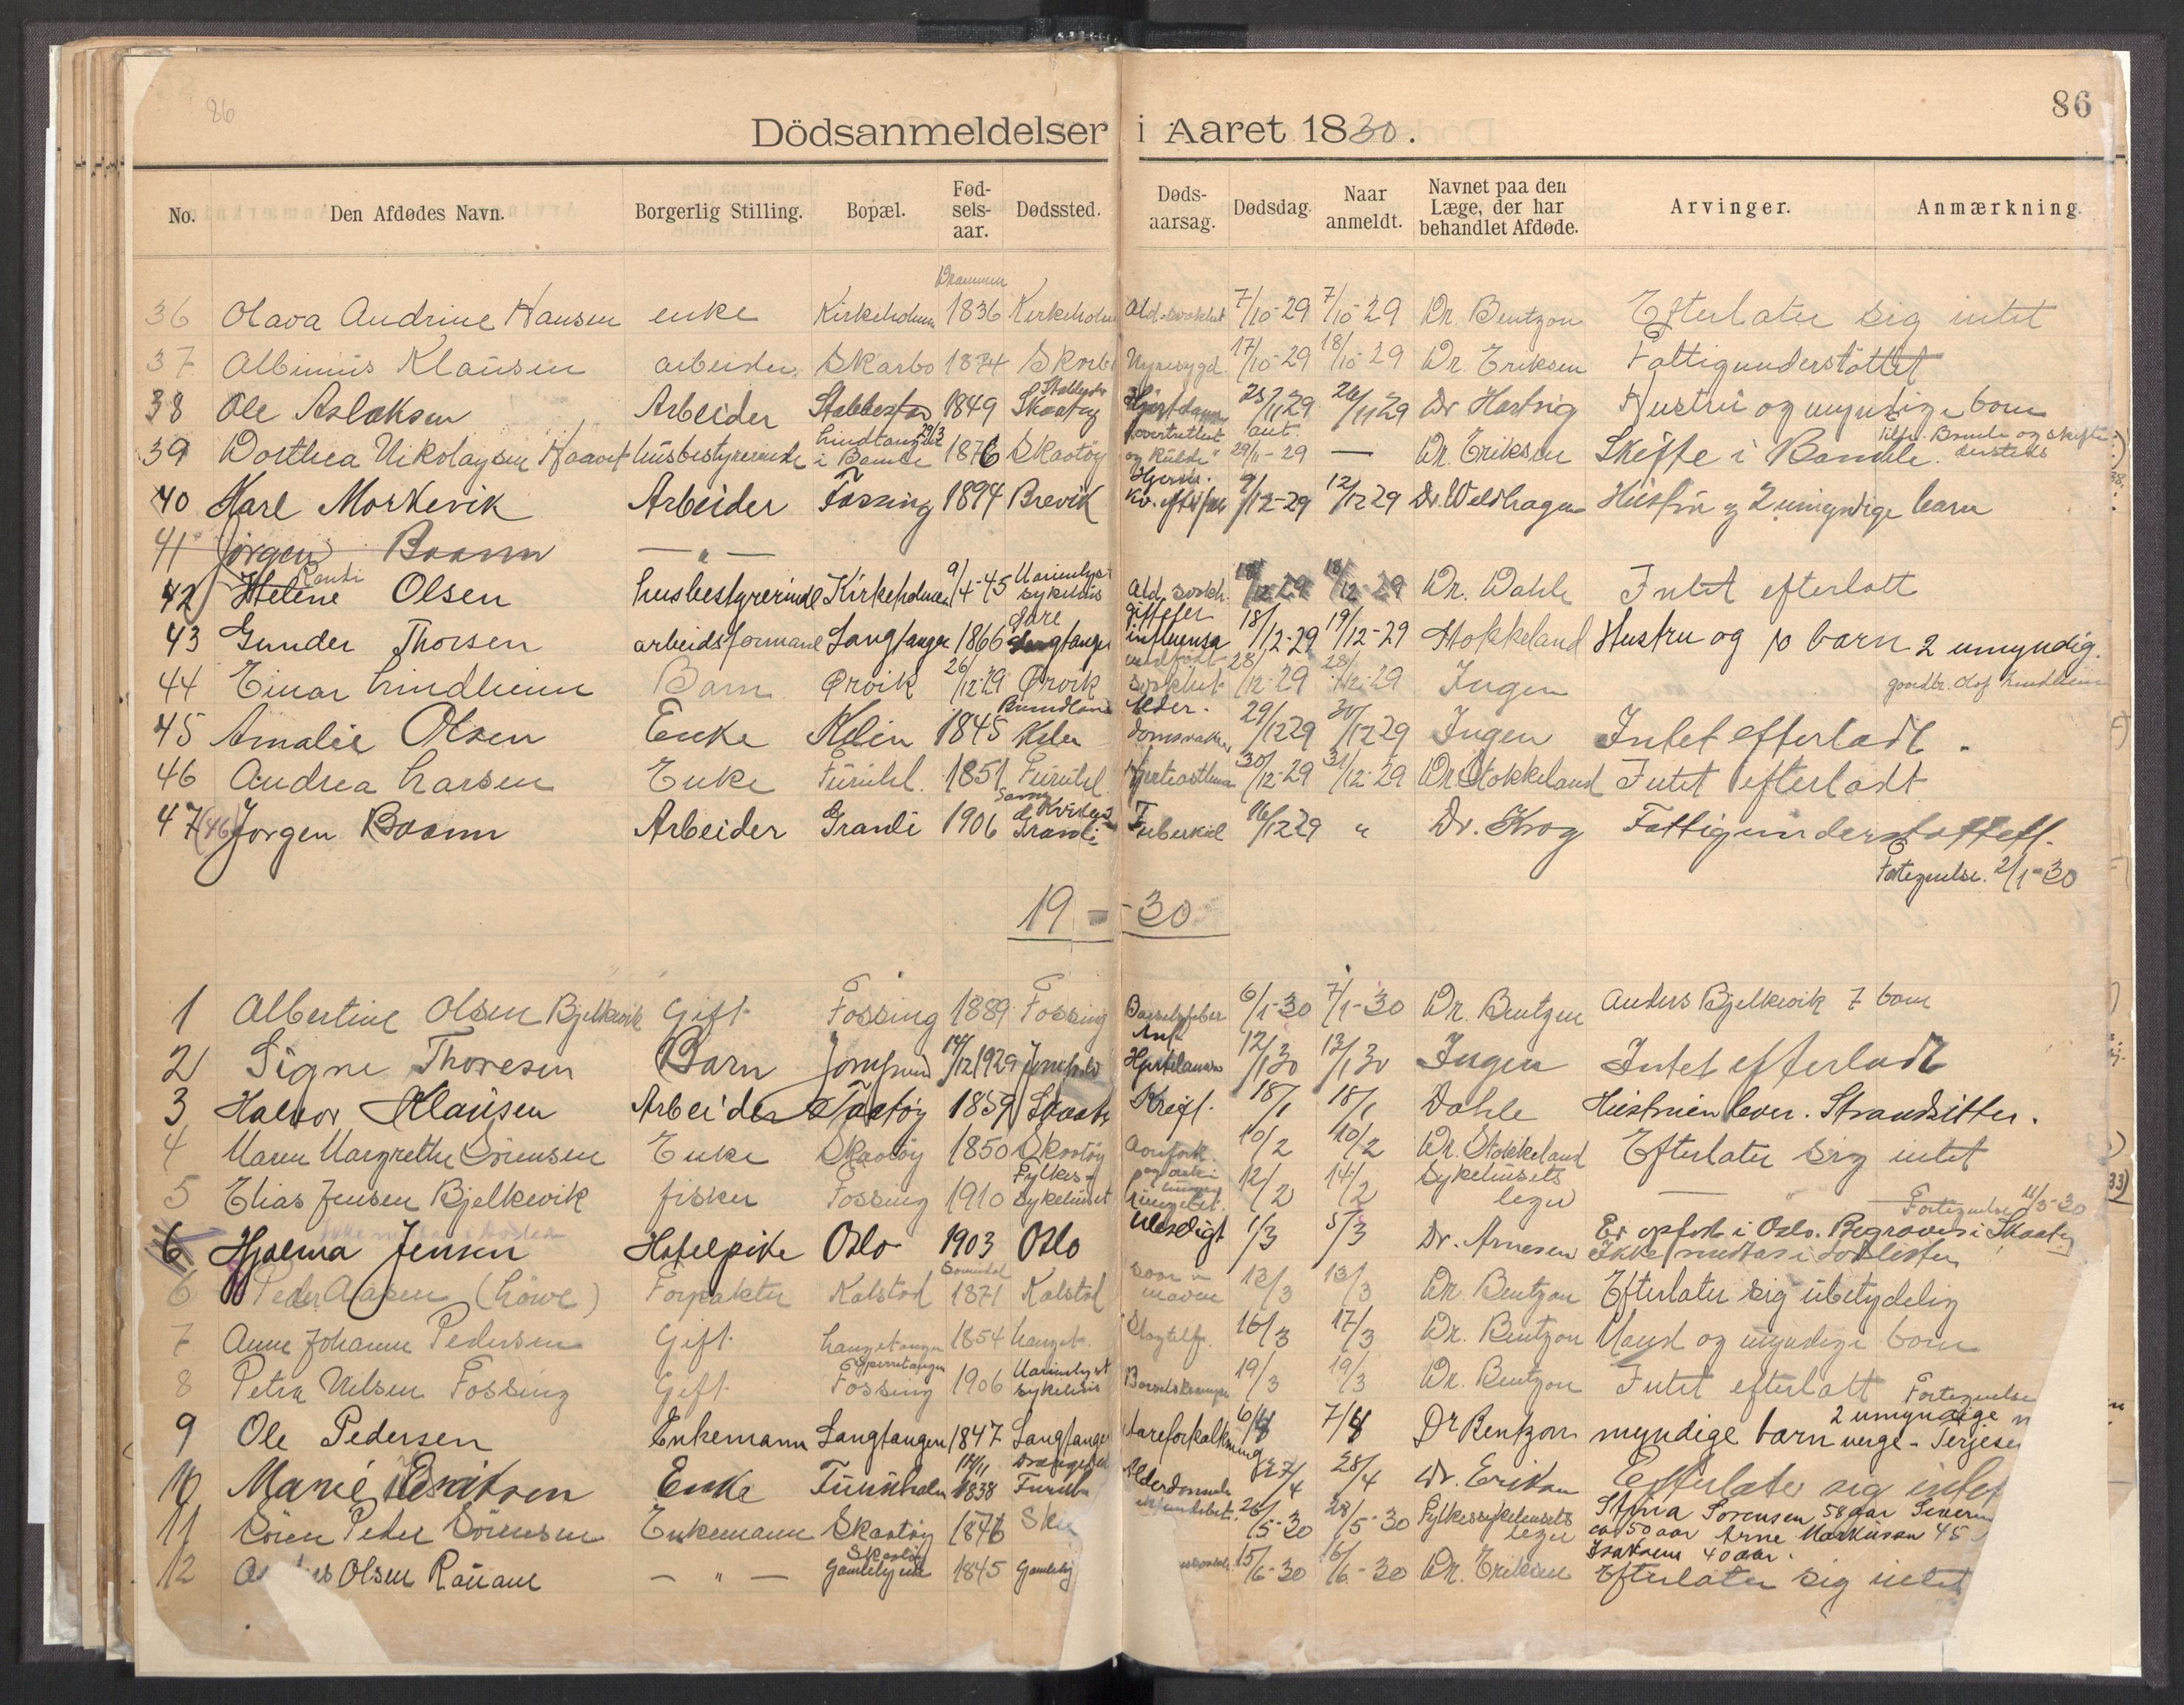 86
86
Dödsanmeldelser i Aaret 1830.
No. Den Afdødes Navn. Borgerlig Stilling. Bopæl. Fødselsaar. Dødssted. Dødsaarsag. Dødsdag. Naar anmeldt. Navnet paa den Læge, der har behandlet Afdøde. Arvinger. Anmærkning.
36 Olava Andrine Hansen enke Kirkeholmen 1836 Kirkeholm Ald. svakhet 7/10-29 7/10-29 Dr. Bentzon Efterlater sig intet
37 Albinius Klausen arbeider Skarbo 1874 Skarbo Nyresygd. 17/10-29 18/10-29 Dr. Eriksen Fattigunderstöttet
38 Ole Aslaksen Arbeider Stabbestad 1849 Skaatøy 25/11 29 26/11 29 Dr Hartvig Hustru og myndige born
39 Dorthea Nikolaysen husbestyrerinde Lindtangen i Bamble 29/3 1876 Skaatøy overtrethet og kulde" 29/11-29 — Dr. Eriksen Skifte i Bamble.
40 Karl Morkevik Arbeider Fossing 1894 Brevik 9/12-29 12/12 29 Hustru og 2 umyndige barn
41 Jörgen Boann — " —
42 Helene Randi Olsen husbestyrerinde Kirkeholmen 9/4-45 Marienlyst sykehus Ald. svakh. 18/12-29 18/12-29 Dr. Dahle Intet efterlatt
43 Gunder Thorsen arbeidsformand Langtangen 1866 Langtangen influensa 18/12-29 19/12-29 Stokkeland Hustru og 10 barn 2 umyndig.
44 Einar Lindheim Barn Ørvik 26/12-29 Ørvik medfödt svakhet 28/12-29 28/12-29 Ingen gaardbr. Olaf Lindheim
45 Amalie Olsen Enke Kilen 1845 Kilen Alderdomsvakhet 29/12 29 30/12 29 Ingen Intet efterladt.
46 Andrea Larsen Enke Furuhl. 1851 Furuhl. Hjerteasthma 30/12-29 31/12-29 Dr Stokkeland Intet efterladt
47 (46) Jorgen Boann Arbeider Granli 1906 Granli Tuberkul 16/12 29 " Dr. Krog Fattigunderstøttett.
Fortegnelse. 2/1-30
19 - - 30
1 Albertine Olsen Bjelkevik Gift Fossing 1889 Fossing Barselfeber 6/1-30 7/1-30 Dr. Bentzen Anders Bjelkevik 7 born
2 Signe Thoresen Barn Jomfruland 14/12 1929 Jomfruland Ant. Hjertelammelse 12/1 30 13/1 30 Ingen Intet efterladt
3 Halvor Klausen Arbeider Tåtøy 1859 Skaatø Kreft. 18/1 18/1 Dahle Hustruen lever. Strandsitter.
4 Maren Margrethe Sörensen Enke Skaatöy 1850 Skaatöy 10/2 10/2 Dr. Stokkeland Efterlater sig intet
5 Elias Jensen Bjelkevik fisker Fossing 1910 Fylkessykehuset 12/2 14/2 Sykehusets leger
Fortegnelse 11/3-30
6 Hjalma Jensen Hotelpike Oslo 1903 Oslo Ulesligt 1/3 5/3 Dr. Arnesen Er opført i Oslo. Begraves i Skaatøy Ikke medtas i dødlisten
6 Peder Aasen (Löwe) Forpakter Kalstad 1871 Kalstad Saar i maven 13/3 13/3 Dr. Bentzon Efterlater sig ubetydelig
7 Anne Johanne Pedersen Gift Langetangen 1854 Langet. Slagtilf. 16/3 17/3 Dr. Bentzon Mand og myndige born
8 Petra Nilsen Fossing Gift Fossing 1906 Marienlyst sykehus 19/3 19/3 Dr. Bentzon Intet efterlatt Fortegnelse
9 Ole Pedersen Enkemann Langtangen 1847 Langtangen Aareforkalkning 6/4 7/4 Dr Bentzon myndige barn 2 umyndige verge - Terjesen
10 Marie Enke Furuholm 1838 Furuh Alderdomssv 27/4 28/4 Dr. Eriksen Efterlater sig intet
11 Sören Peder Sörensen Enkemann Skaatöy 1846 Sk 26/5-30 28/5-30 Fylkessykehusets leger Stina Sorensen 58 aar Severin ca 50 aar Arne Markussen 45 Isaksen 40 aar.
12 Olsen Rauane — " — Skaatöy Gamlebyen 1845 Gamleby 15/6-30 16/6-30 Dr. Eriksen Efterlater sig intet